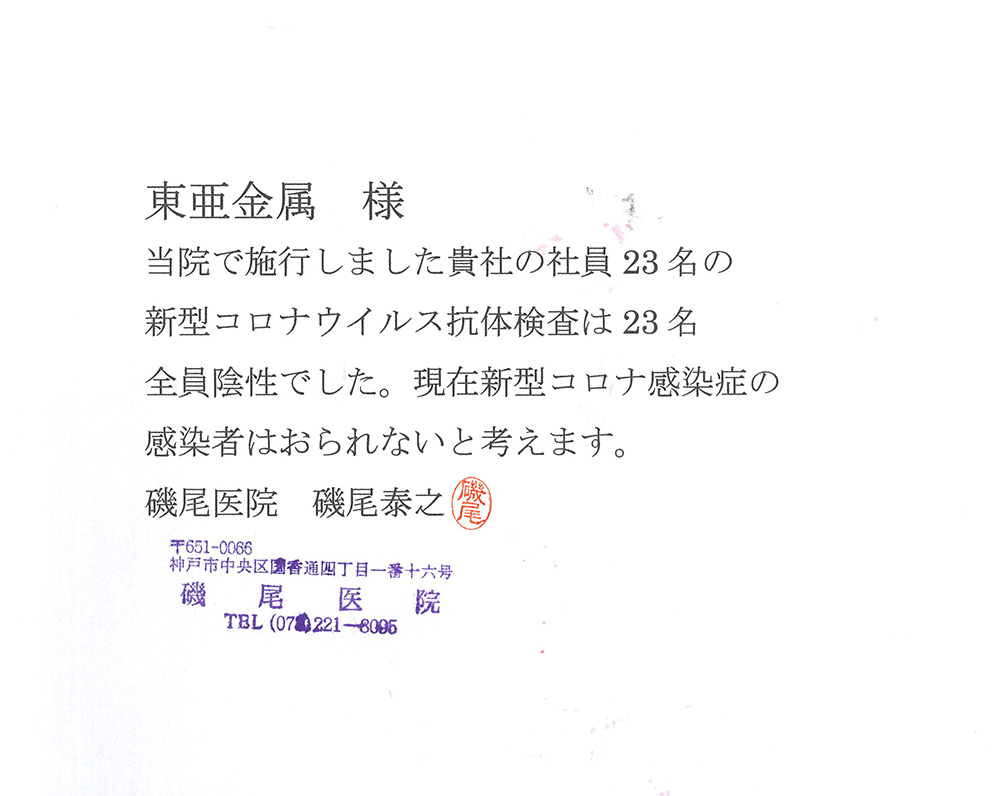 東亜金属　様
当院で施行しました貴社の社員 23 名の
新型コロナウイルス抗体検査は 23 名
全員陰性でした。現在新型コロナ感染症の
感染者はおられないと考えます。
磯尾医院　磯尾泰之
磯尾
〒651-0066
神戸市中央区国香通四丁目一番十六号
磯尾医院
TEL (078)221-